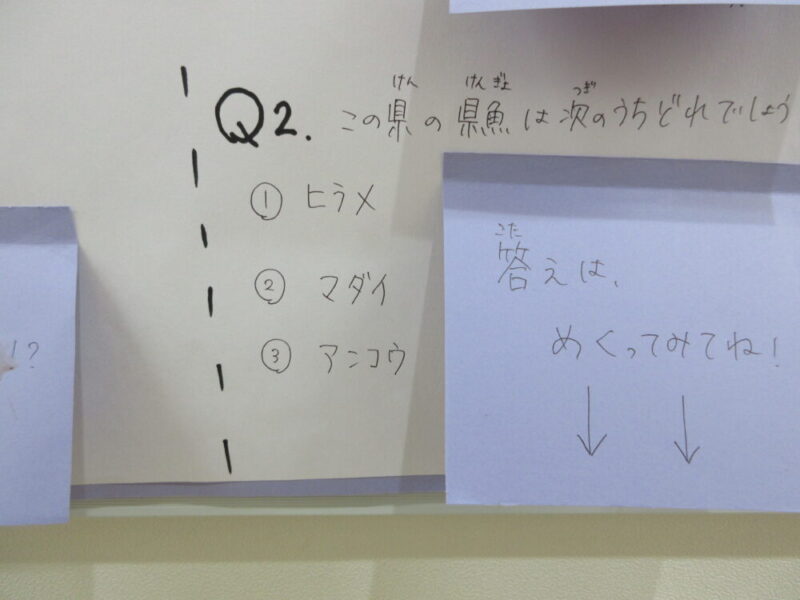 Q2. この県の県魚は次のうちどれでしょう
けん けんぎょ つぎ
① ヒラメ
② マダイ
③ アンコウ
こた
答えは、
めくってみてね!
!?